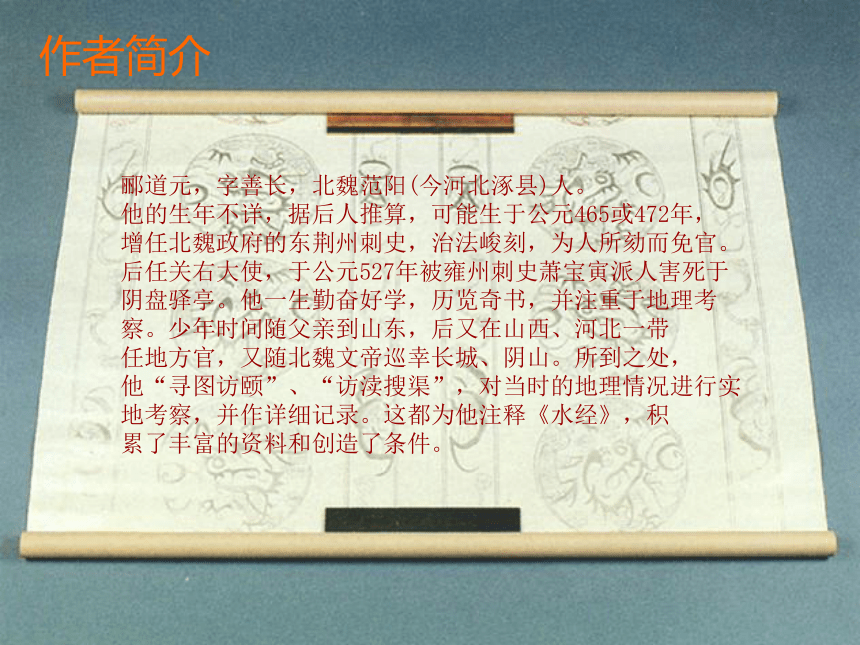 作者简介
郦道元，字善长，北魏范阳(今河北涿县)人。
他的生年不详，据后人推算，可能生于公元465或472年，
增任北魏政府的东荆州刺史，治法峻刻，为人所劾而免官。
后任关右大使，于公元527年被雍州刺史萧宝寅派人害死于
阴盘驿亭。他一生勤奋好学，历览奇书，并注重于地理考
察。少年时间随父亲到山东，后又在山西、河北一带
任地方官，又随北魏文帝巡幸长城、阴山。所到之处，
他“寻图访颐”、“访渎搜渠”，对当时的地理情况进行实
地考察，并作详细记录。这都为他注释《水经》，积
累了丰富的资料和创造了条件。